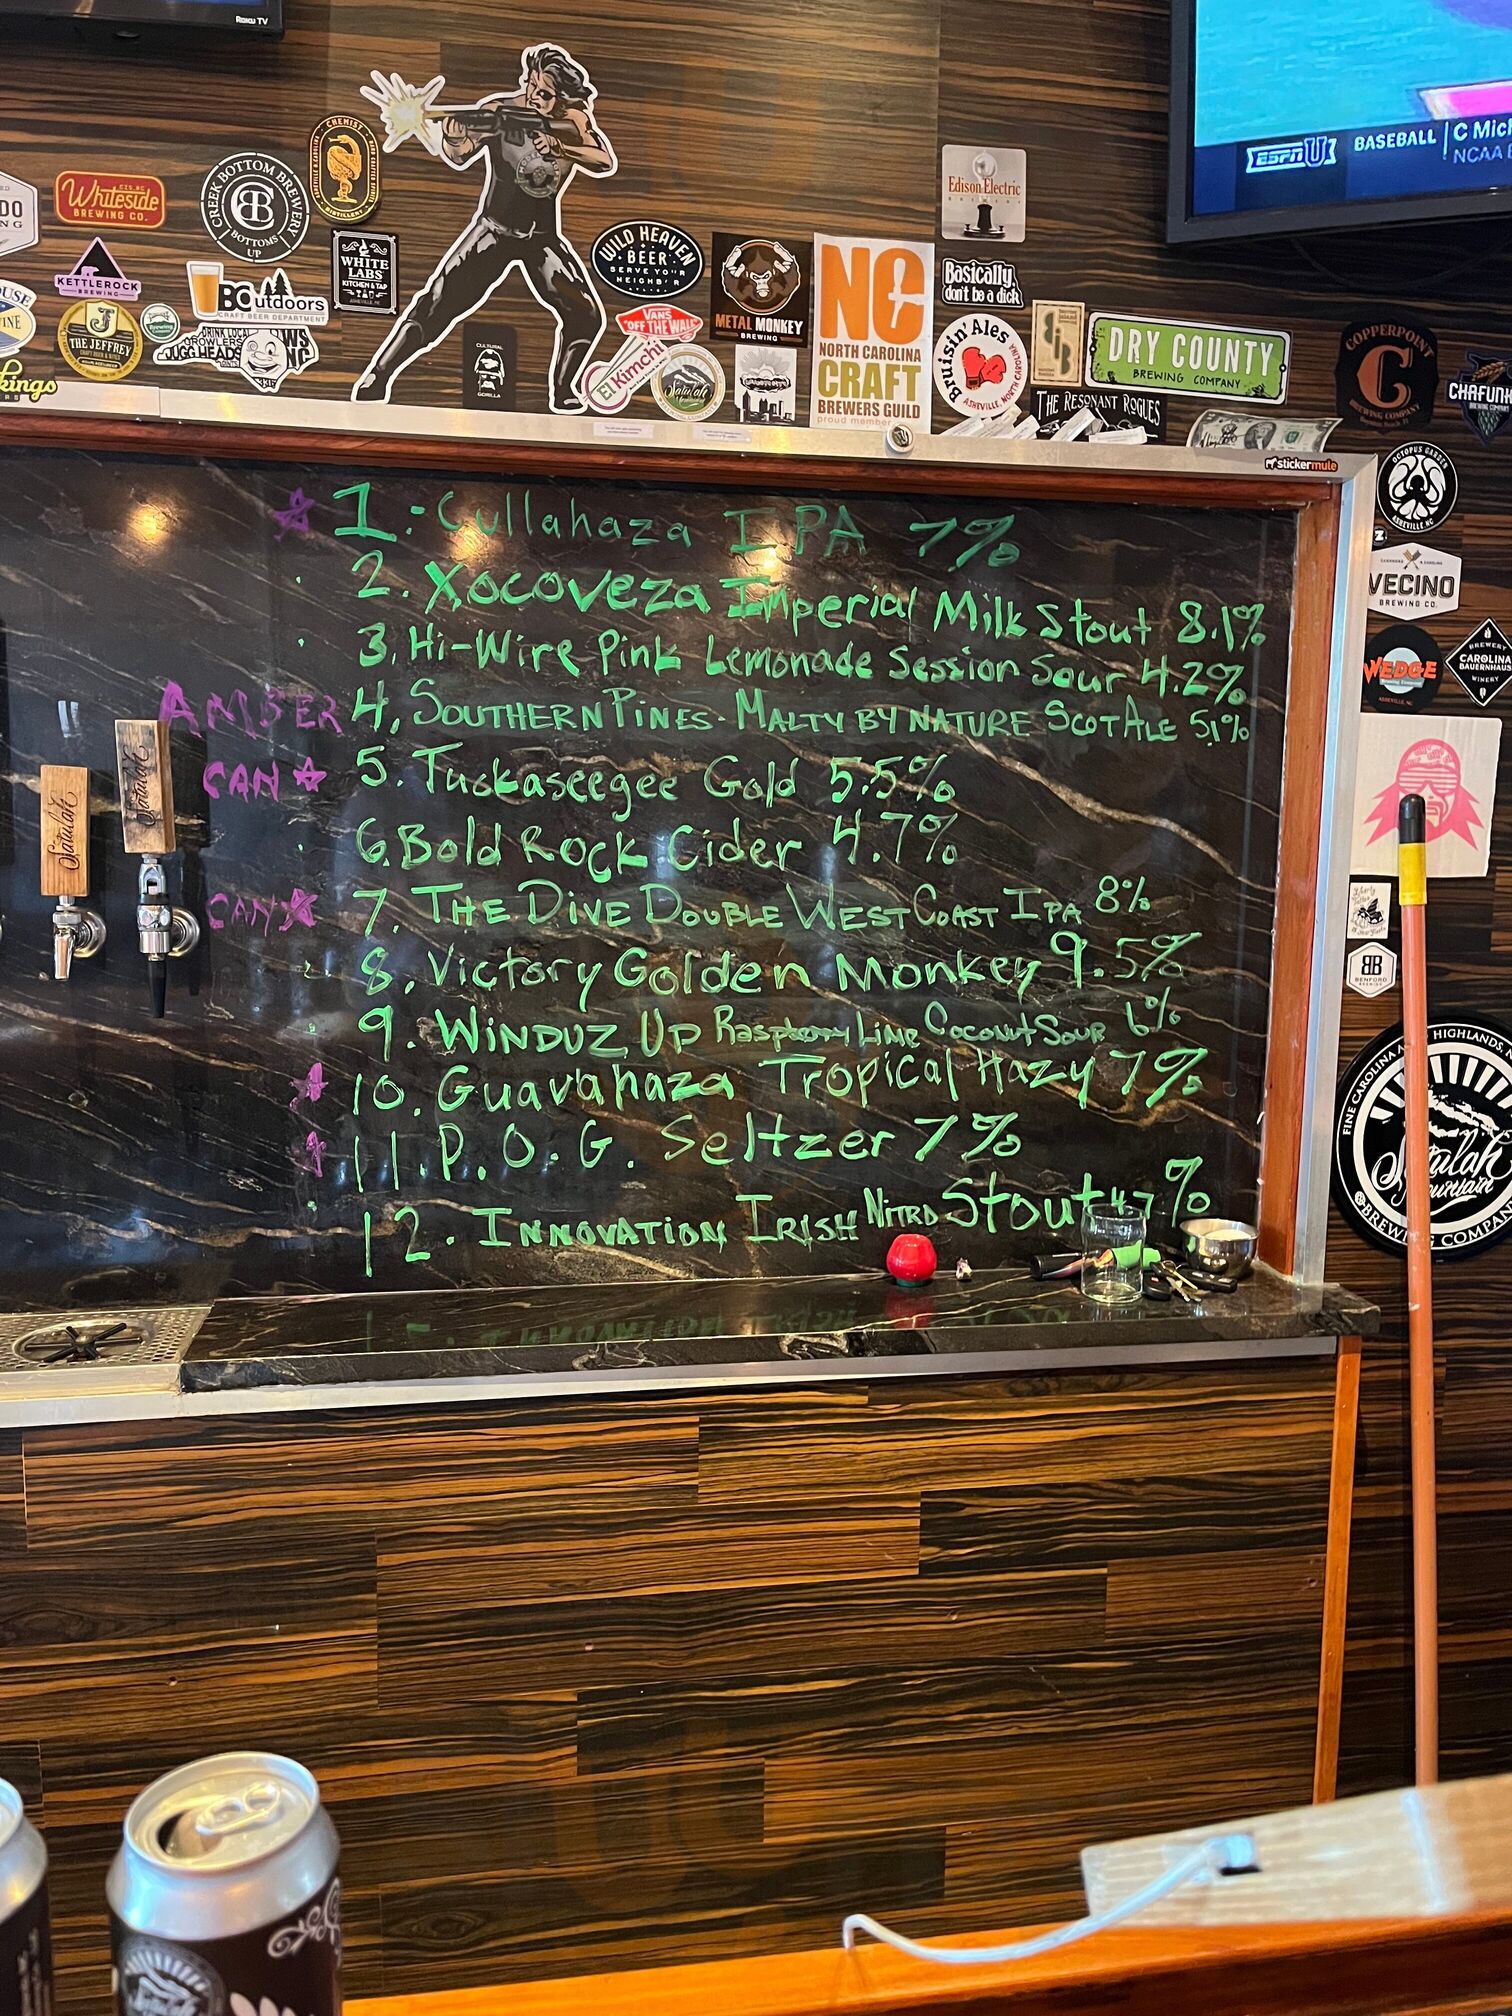 Roku TV
ESPNU
BASEBALL
C Mich
NCAA
CHEMIST
DISTILLERY
Whiteside
BREWING CO.
CREEK BOTTOM BREWERY
BOTTOMS UP
WHITE LABS
KITCHEN & TAP
WILD HEAVEN
BEER
SERVE YOU'R
NEIGHB'R
Edison Electric
KETTLEROCK
BREWING
BC Outdoors
CRAFT BEER DEPARTMENT
METAL MONKEY
BREWING
NC
NORTH CAROLINA
CRAFT
BREWERS GUILD
proud member
Basically,
don't be a dick
VANS
"OFF THE WALL"
THE JEFFREY
DRINK LOCAL
GROWLERS
JUGG HEADS
CULTURAL
GORILLA
El Kimchi
Satulah
Bruisin' Ales
ASHEVILLE, NORTH CAROLINA
DRY COUNTY
BREWING COMPANY
COPPERPOINT
BREWING COMPANY
THE RESONANT ROGUES
stickermule
OCTOPUS GARDEN
ASHEVILLE, NC
VECINO
BREWING CO.
WEDGE
BREWERY
CAROLINA
BAUERNHAUS
WINERY
BB
1. Cullahaza IPA 7%
2. Xocoveza Imperial Milk Stout 8.1%
3. Hi-Wire Pink Lemonade Session Sour 4.2%
AMBER 4. SOUTHERN PINES - MALTY BY NATURE SCOT ALE 5.1%
CAN 5. Tuckaseegee Gold 5.5%
6. Bold Rock Cider 4.7%
CAN 7. THE DIVE DOUBLE WEST COAST IPA 8%
8. Victory Golden Monkey 9.5%
9. WINDUZ UP Raspberry Lime Coconut Sour 6%
10. Guavahaza Tropical Hazy 7%
11. P.O.G. Seltzer 7%
12. INNOVATION IRISH NITRO Stout 4.7%
Satulah
Satulah
FINE CAROLINA
HIGHLANDS,
Satulah
Mountain
BREWING COMPANY